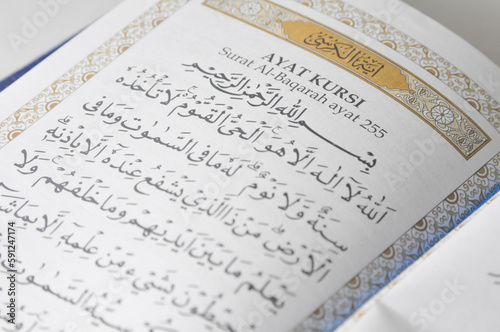 اية الكرسي
AYAT KURSI
Surat Al-Baqarah ayat 255
بِسْمِ اللّٰهِ الرَّحْمٰنِ الرَّحِيْمِ
اَللّٰهُ لَآ اِلٰهَ اِلَّا هُوَ الْحَيُّ الْقَيُّوْمُ ەۚ لَا تَأْخُذُهٗ
سِنَةٌ وَّلَا نَوْمٌۗ لَهٗ مَا فِى السَّمٰوٰتِ وَمَا فِى
الْاَرْضِۗ مَنْ ذَا الَّذِيْ يَشْفَعُ عِنْدَهٗٓ اِلَّا بِاِذْنِهٖۗ
يَعْلَمُ مَا بَيْنَ اَيْدِيْهِمْ وَمَا خَلْفَهُمْۚ وَلَا
يُحِيْطُوْنَ بِشَيْءٍ مِّنْ عِلْمِهٖٓ اِلَّا بِمَا شَاۤءَ
السَّمٰوٰتِ
Adobe Stock | #591247174